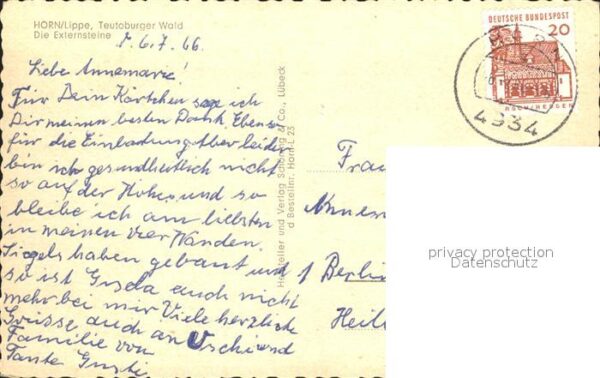 HORN/Lippe, Teutoburger Wald
Die Externsteine
6.7.66
Liebe Annemarie!
Für Dein Kärtchen sage ich
Dir meinen besten Dank. Ebenso
für die Einladung. Aber leider
bin ich gesundheitlich nicht
so auf der Höhe und so
bleibe ich am liebsten
in meinen vier Wänden.
haben gebaut und
so ist Gisela auch nicht
mehr bei mir Viele herzliche
Grüsse auch an Uschi und
Familie von
Tante Gusti
Hersteller und Verlag Schöning & Co., Lübeck
Bestellnr. Horn-L 23
DEUTSCHE BUNDESPOST
20
4934
Frau
Annem
1 Berlin
Heil
privacy protection
Datenschutz